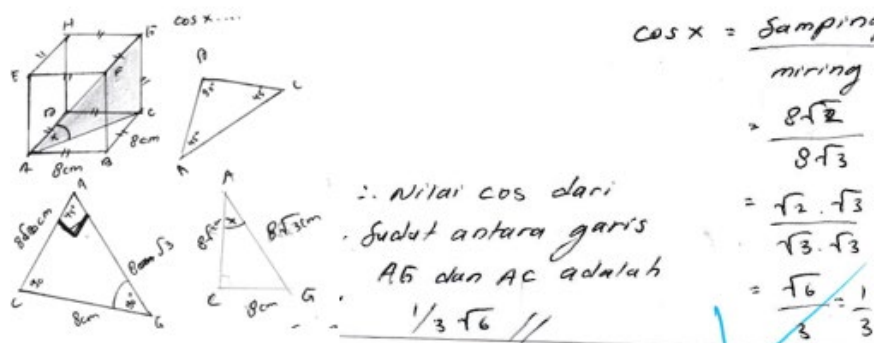 cos x....
H
G
E
F
D
C
x
A
B
8cm
8cm
B
90°
45°
C
45°
A
A
45°
8√3
C
90
8cm
G
A
x
8√3cm
C
8cm
G
∴ Nilai cos dari
Sudut antara garis
AG dan AC adalah
1/3 √6 //
cos x = Samping
miring
= 8√2
8√3
= √2 . √3
√3 . √3
= √6
3
= 1
3